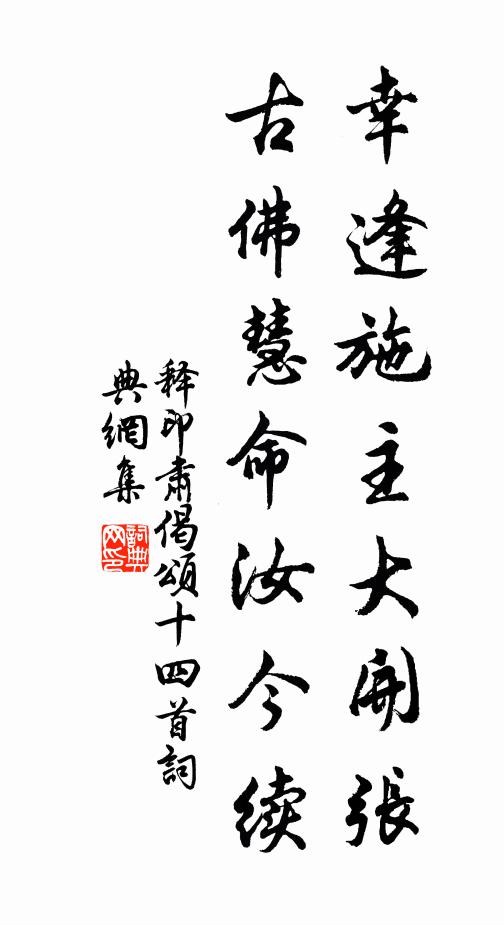 幸逢施主大開張
古佛慧命汝今续
释印肅偈頌十四首詞
典網集
詞典
网印